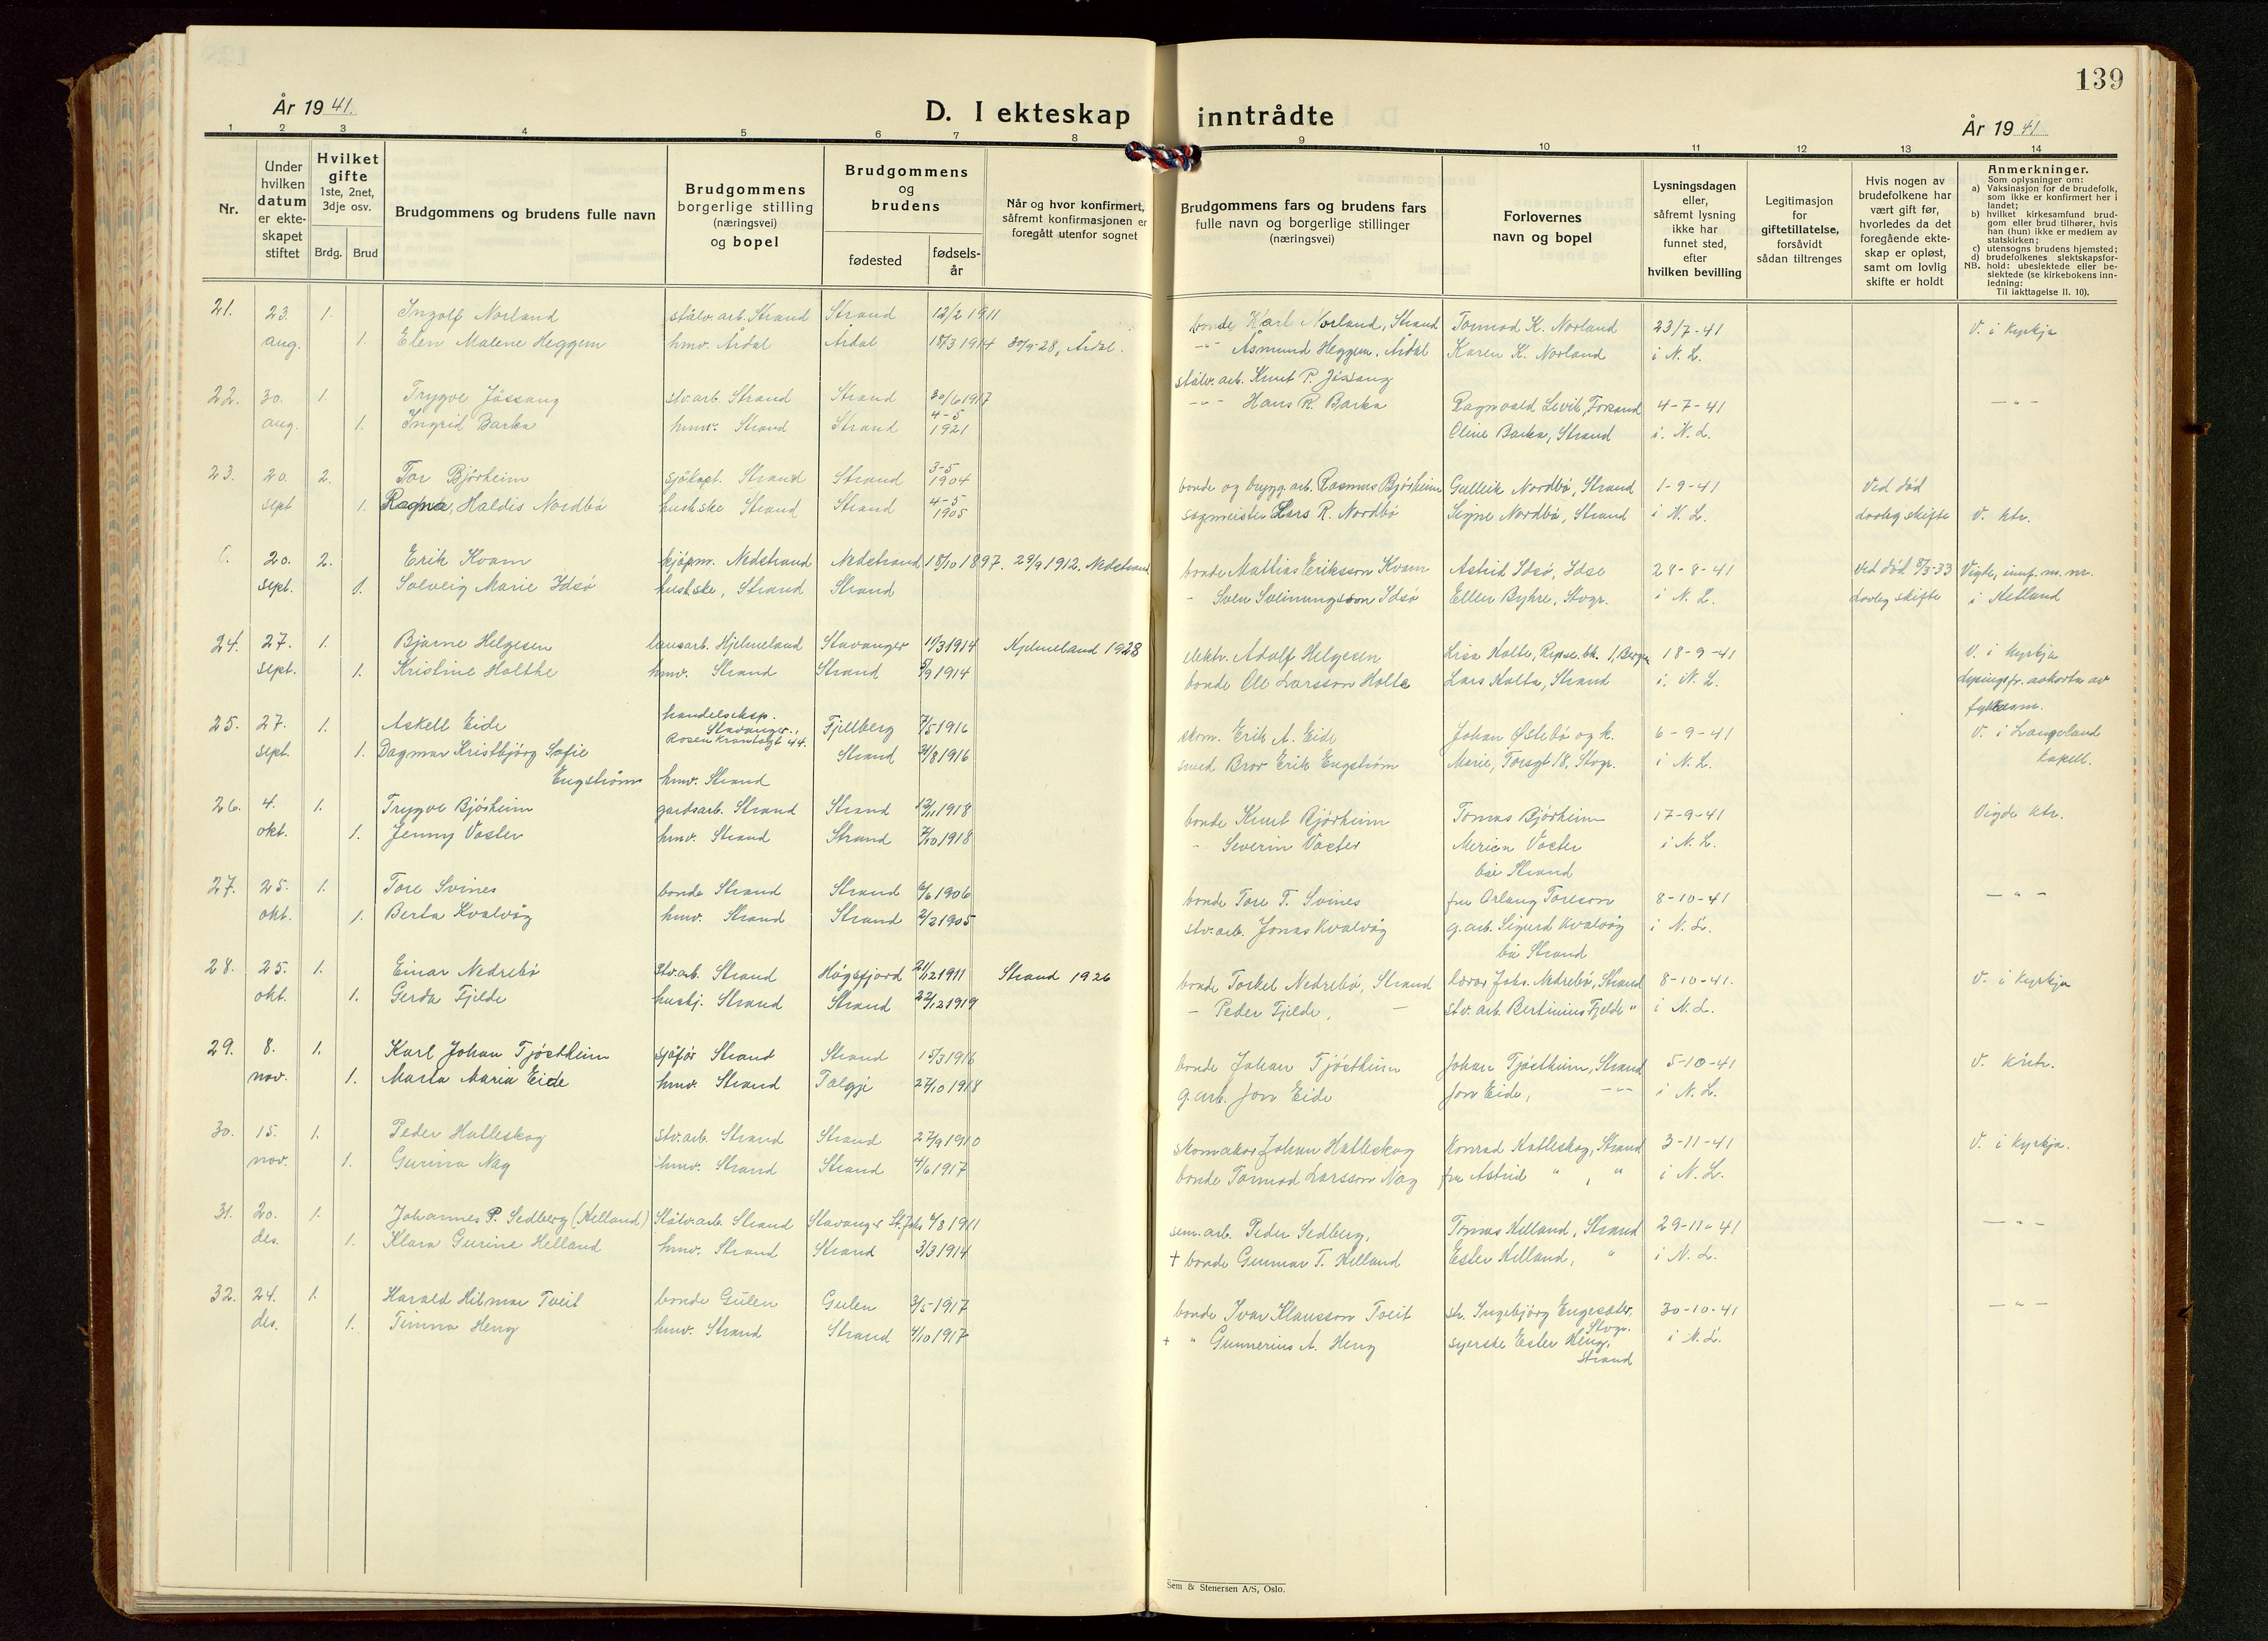 139
År 1941.
D. I ekteskap inntrådte
År 1941
1 2 3 4 5 6 7 8 9 10 11 12 13 14
Nr.
Under hvilken datum er ekte-skapet stiftet
Hvilket gifte 1ste, 2net, 3dje osv.
Brdg. Brud
Brudgommens og brudens fulle navn
Brudgommens borgerlige stilling (næringsvei) og bopel
Brudgommens og brudens
fødested
fødsels-år
Når og hvor konfirmert, såfremt konfirmasjonen er foregått utenfor sognet
Brudgommens fars og brudens fars fulle navn og borgerlige stillinger (næringsvei)
Forlovernes navn og bopel
Lysningsdagen eller, såfremt lysning ikke har funnet sted, efter hvilken bevilling
Legitimasjon for giftetillatelse, forsåvidt sådan tiltrenges
Hvis nogen av brudefolkene har vært gift før, hvorledes da det foregående ekte-skap er opløst, samt om lovlig skifte er holdt
Anmerkninger.
Som oplysninger om:
a) Vaksinasjon for de brudefolk, som ikke er konfirmert her i landet;
b) hvilket kirkesamfund brud-gom eller brud tilhører, hvis han (hun) ikke er medlem av statskirken;
c) utensogns brudens hjemsted;
d) brudefolkenes slektskapsfor-
NB. hold: ubeslektede eller be-slektede (se kirkebokens inn-ledning:
Til iakttagelse II. 10).
21. 23. 1. Ingolf Norland stålv.arb. Strand Strand 12/2 1911 bonde Karl Norland, Strand Tormod K. Norland 23/7-41 V. i kyrkja
aug. 1. Elen Malene Heggem hmv. Årdal Årdal 18/3 1914 30/9-28, Årdal. -"- Åsmund Heggem, Årdal Karen K. Norland i N. L.
stålv. arb. Knut P. Jøssang
22. 30. 1. Trygve Jøssang stv.arb. Strand Strand 30/6 1917 -"- Hans R. Barka Ragnvald Levik, Forsand 4-7-41 -"-
aug. 1. Ingrid Barka hmv. Strand Strand 4-5 1921 Oline Barka, Strand i. N. L.
23. 20. 2. Tor Bjørheim sjåkapt. Strand Strand 3-5 1904 bonde og bygg. arb. Rasmus Bjørheim Gulleik Nordbø, Strand 1-9-41 Ved død
sept 1. Ragna, Haldis Nordbø hushske Strand Strand 4-5 1905 sagmeister Lars R. Nordbø Signe Nordbø, Strand i N. L. lovleg skifte V. ktr.
20. 2. Erik Kvam kjøpm. Nedstrand Nedstrand 18/10 1897. 29/9 1912. Nedstrand bonde Mathias Eriksson Kvam Astrid Idsø, Idse 28-8-41 Ved død 9/3-33 Vigde, innf. u. nr.
sept. 1. Solveig Marie Idsø hushske, Strand Strand - Sven Sveinungsson Idsø Ellen Byhre, Stvgr. i N. L. lovleg skifte i Hetland
24. 27. 1. Bjarne Helgesen lausarb. Hjelmeland Stavanger 11/3 1914 Hjelmeland 1928 elektr. Adolf Helgesen Lisa Holte, Repsl.bk. 1, Bergen 18-9-41 V. i kyrkja
sept. 1. Kristine Holthe hmv. Strand Strand 5/9 1914 bonde Ole Larsson Holte Lars Holta, Strand i. N. L. Lysingsfr. avkorta av fylkesm.
25. 27. 1. Askell Eide handelseksp. Stavanger, Rosenkrantzgt 44. Fjellberg 7/5 1916 skom. Erik A. Eide Johan Østebø og k. 6-9-41 V. i Langeland
sept. 1. Dagmar Kristbjørg Sofie Strand 21/8 1916 smed Bror Erik Engstrøm Merie, Torsgt 18, Stvgr. i N. L. kapell.
Engstrøm hmv. Strand
26. 4. 1. Trygve Bjørheim gardsarb. Strand Strand 12/11 1918 bonde Knut Bjørheim Tomas Bjørheim 17-9-41 Vigde ktr.
okt. 1. Jenny Voster hmv. Strand Strand 7/10 1918 - Severin Voster Merien Voster i N. L.
bæ Strand
27. 25. 1. Tore Svines bonde Strand Strand 6/6 1906 bonde Tore T. Svines fru Orlaug Toreson 8-10-41 -"-
okt. 1. Berta Kvalvåg hmv. Strand Strand 2/2 1905 stv. arb. Jonas Kvalvåg g.arb. Sigurd Kvalvåg i N. L.
bæ Strand
28. 25. 1. Einar Nedrebø stv.arb. Strand Høgsfjord 21/12 1911 Strand 1926 bonde Torkel Nedrebø, Strand lærar Johs. Nedrebø, Strand 8-10-41. V. i kyrkja
okt. 1. Gerda Fjelde hushj. Strand Strand 22/12 1919 - Peder Fjelde, - stv. arb. Bertinius Fjelde " i N. L.
29. 8. 1. Karl Johan Tjøstheim sjåfør Strand Strand 15/3 1916 bonde Johan Tjøstheim Johan Tjøstheim, Strand 5-10-41 V. kntr.
nov. 1. Marta Maria Eide hmv. Strand Talgje 27/10 1918 g. arb. Jon Eide Jon Eide, -"- i N. L.
30. 15. 1. Peder Hatleskog stv.arb. Strand Strand 27/9 1910 skomakar Johan Hatleskog Konrad Hatleskog, Strand 3-11-41 V. i kyrkja.
nov. 1. Gurina Nag hmv. Strand Strand 4/6 1917 bonde Tormod Larsson Nag fru Astrid " , " i N. L.
31. 20. 1. Johannes P. Sedberg (Helland) Stålv.arb. Strand Stavanger St. Johs 6/8 1911 sem. arb. Peder Sedberg, Tomas Helland, Strand 29-11-41 -"-
des. 1. Klara Gurine Helland hmv. Strand Strand 3/3 1914 + bonde Gunnar T. Helland Ester Helland, " i N. L.
32. 24. 1. Harald Hilmar Tveit bonde Gulen Gulen 3/5-1917 bonde Ivar Klausson Tveit str. Ingebjørg Engesæter, Stvgr. 30-10-41 -"-
des. 1. Timna Heng hmv. Strand Strand 4/10 1917 + " Gunnerius A. Heng syerske Ester Heng, Strand i N. L.
Sem & Stenersen A/S, Oslo.